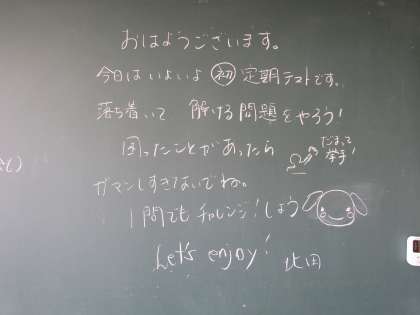 おはようございます。
今日はいよいよ 初 定期テストです。
落ち着いて 解ける問題をやろう!
困ったことがあったら
だまって
挙手!
ガマンしすぎないでね。
1問でもチャレンジ!しよう
Let's enjoy!